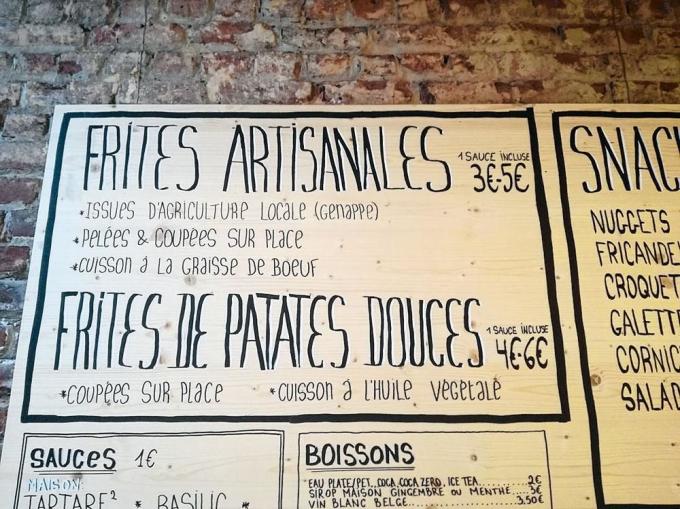 FRITES ARTISANALES
1 SAUCE INCLUSE
3€-5€
*ISSUES D'AGRICULTURE LOCALE (GENAPPE)
*PELÉES & COUPÉES SUR PLACE
*CUISSON à LA GRAISSE DE BOEUF
FRITES DE PATATES DOUCES
1 SAUCE INCLUSE
4€-6€
*COUPÉES SUR PLACE *CUISSON à L'HUILE VÉGÉTALE
SAUCES 1€
MAISON:
TARTARE² * BASILIC *
BOISSONS
EAU PLATE/PET., COCA, COCA ZERO, ICE TEA........2€
SIROP MAISON GINGEMBRE OU MENTHE.....3€
VIN BLANC BELGE....................3.50€
SNAC
NUGGETS
FRICANDE
CROQUET
GALETT
CORNIC
SALAD